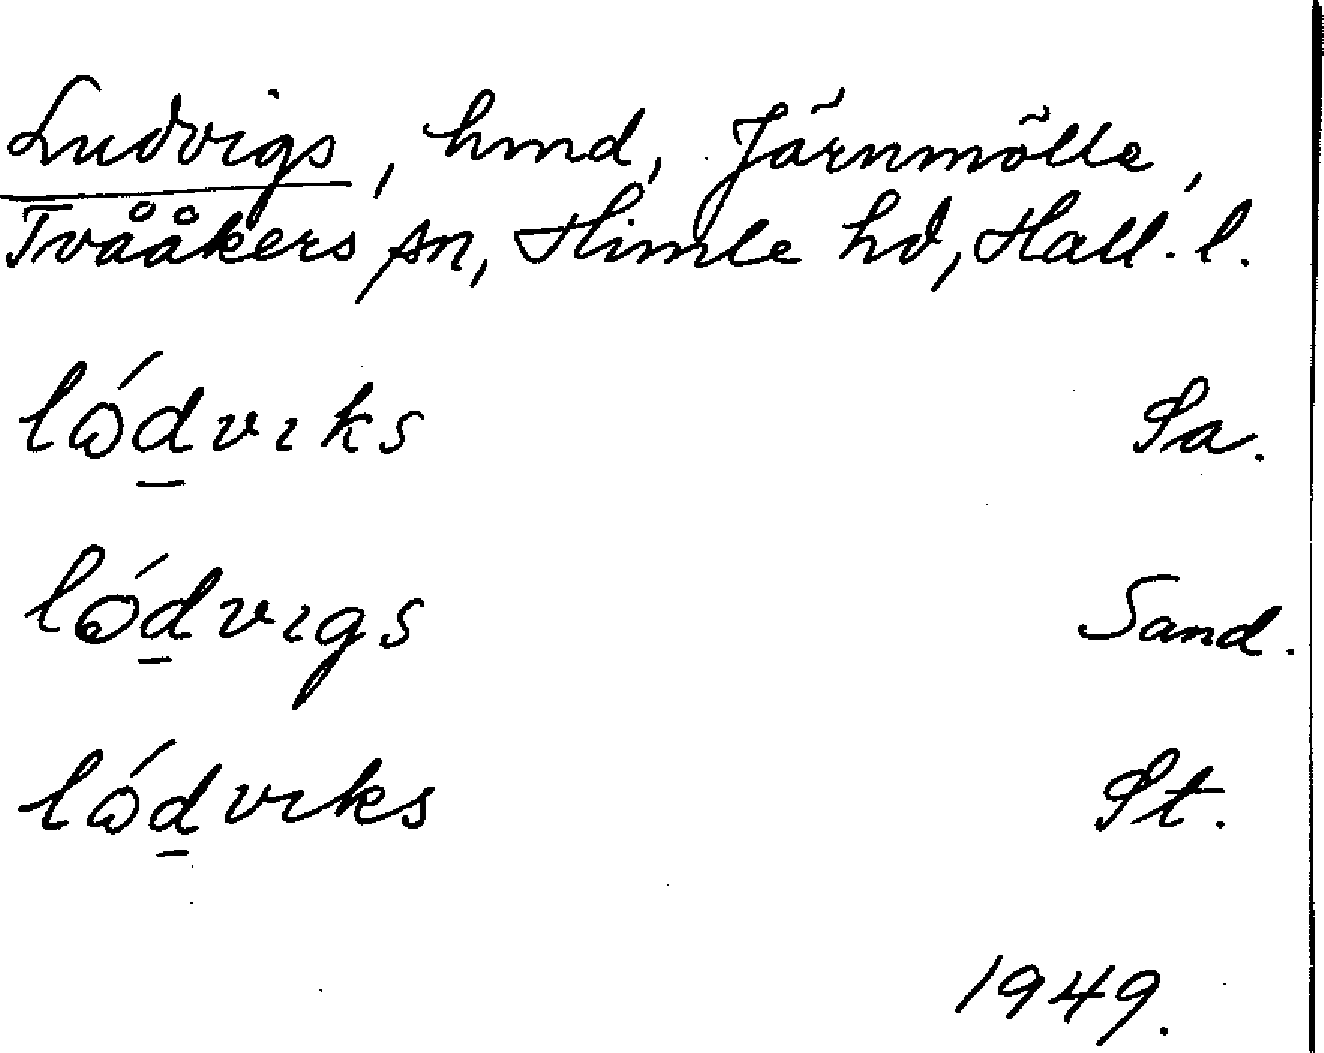 Ludvigs, hmd, Järnmölle,
Tvååkers sn, Himle hd, Hall. l.
lώd̲vıks Sa.
lώd̲vıgs Sand.
lώd̲vıks St.
1949.